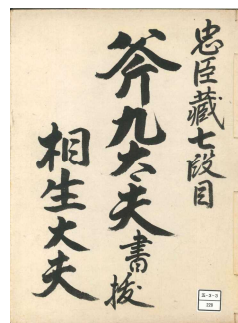 忠臣藏七段目
斧九太夫書拔
相生太夫